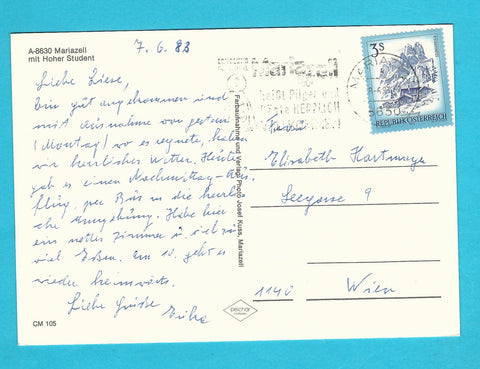 A-8630 Mariazell
mit Hoher Student
7. 6. 83
Liebe Liese,
bin gut angekommen und
mit Ausnahme von gestern
(Montag) wo es regnete, haben
wir herrliches Wetter. Heute
gab es einen Nachmittag-Aus-
flug, per Bus in die herrli-
che Umgebung. Habe hier
ein nettes Zimmer u.
viel Essen. Am 10. geht es
wieder heimwärts.
Liebe Grüße
CM 105
Farbaufnahme und Verlag Photo Josef Kuss, Mariazell
Mariazell
heißt Pilger und
Gäste HERZLICH
3 S
REPUBLIK ÖSTERREICH
8630
Elisabeth Hartmayer
Seegasse 9
1140 Wien